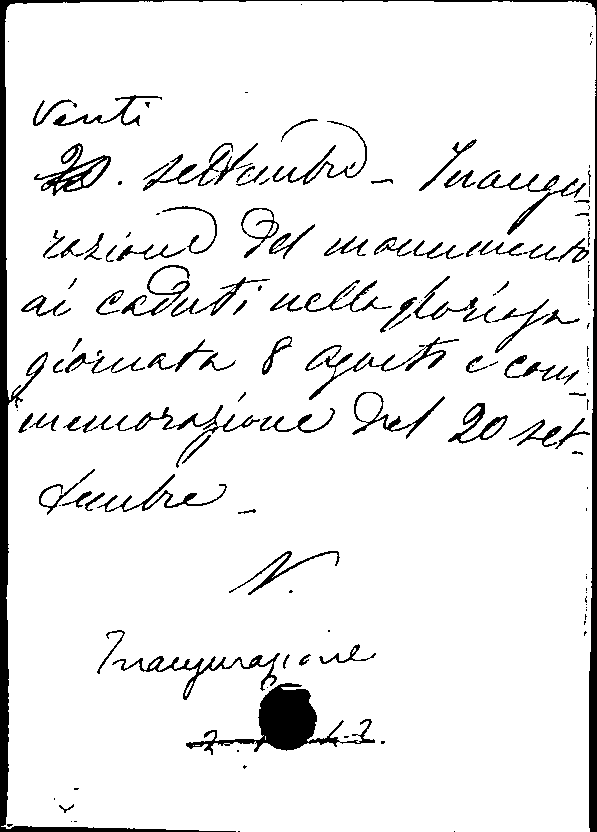 Venti
20. settembre - Inaugu=
razione del monumento
ai caduti nella gloriosa
giornata 8 agosto e com-
memorazione del 20 set-
tembre -
V.
Inaugurazione